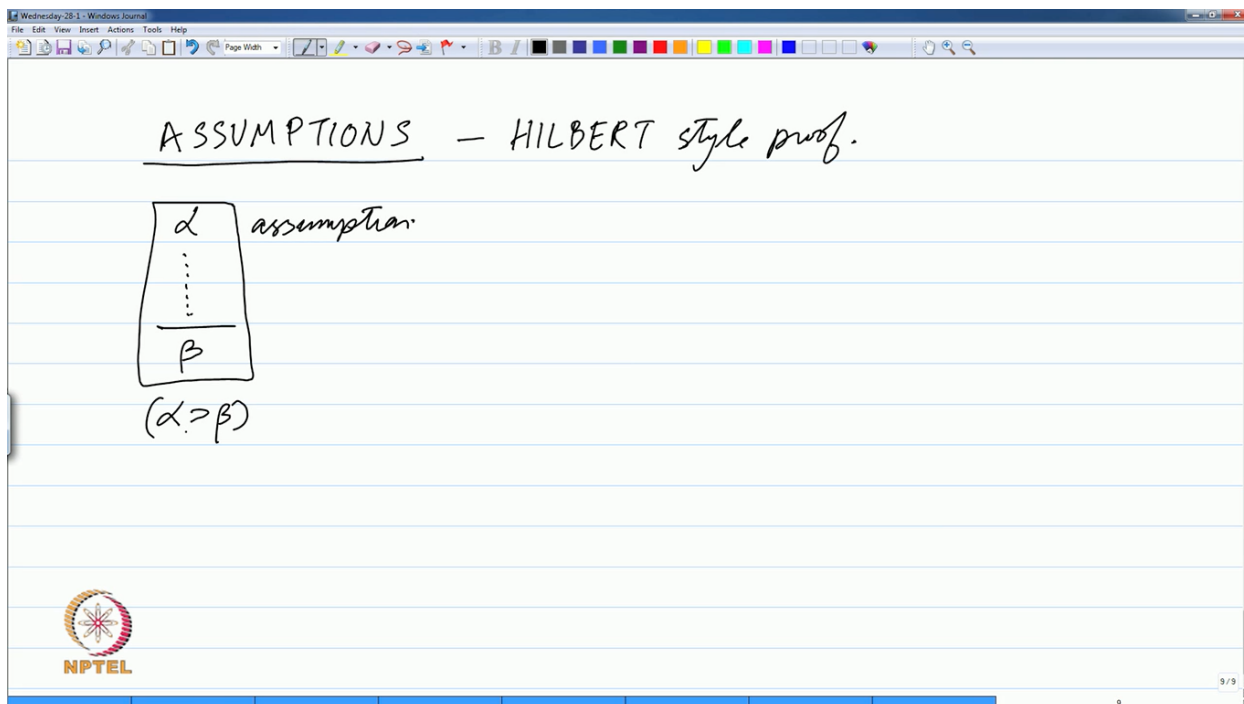 Wednesday-28-1 - Windows Journal
File Edit View Insert Actions Tools Help
Page Width B I
ASSUMPTIONS – HILBERT style proof.
α assumption.
β
(α ⊃ β)
NPTEL
9/9
9